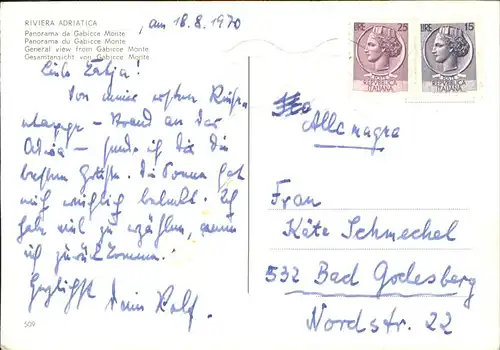 RIVIERA ADRIATICA
Panorama da Gabicce Monte
Panorama du Gabicce Monte
General view from Gabicce Monte
Gesamtansicht von Gabicce Monte
, am 18.8.1970
Liebe Katja!
Von meiner
- Strand an der
Adria - sende ich Dir die
besten Grüße. Die Sonne hat
mich
habe viel zu erzählen, wenn
ich zurück komme.
Herzlichst Dein Rolf.
509
LIRE 25
REPUBBLICA
ITALIANA
LIRE 15
REPUBBLICA
ITALIANA
Allemagna
Frau
Käte Schmechel
532 Bad Godesberg
Nordstr. 22